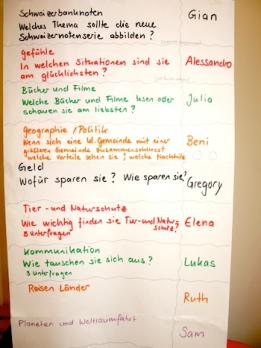 Schweizerbanknoten
Welches Thema sollte die neue
Schweizernotenserie abbilden?
Gian
Gefühle
In welchen Situationen sind sie
am glücklichsten?
Alessandro
Bücher und Filme
Welche Bücher und Filme lesen oder
schauen sie am liebsten?
Julia
Geographie / Politik
Wenn sich eine kl. Gemeinde mit einer
grösseren Gemeinde zusammenschliesst
welche Vorteile sehen sie, welche Nachteile
Beni
Geld
Wofür sparen sie? Wie sparen sie?
Gregory
Tier- und Naturschutz
Wie wichtig finden sie Tier- und Natur-
schutz?
3 Unterfragen
Elena
Kommunikation
Wie tauschen sie sich aus?
3 Unterfragen
Lukas
Reisen Länder
Ruth
Planeten und Weltraumfahrt
Sam